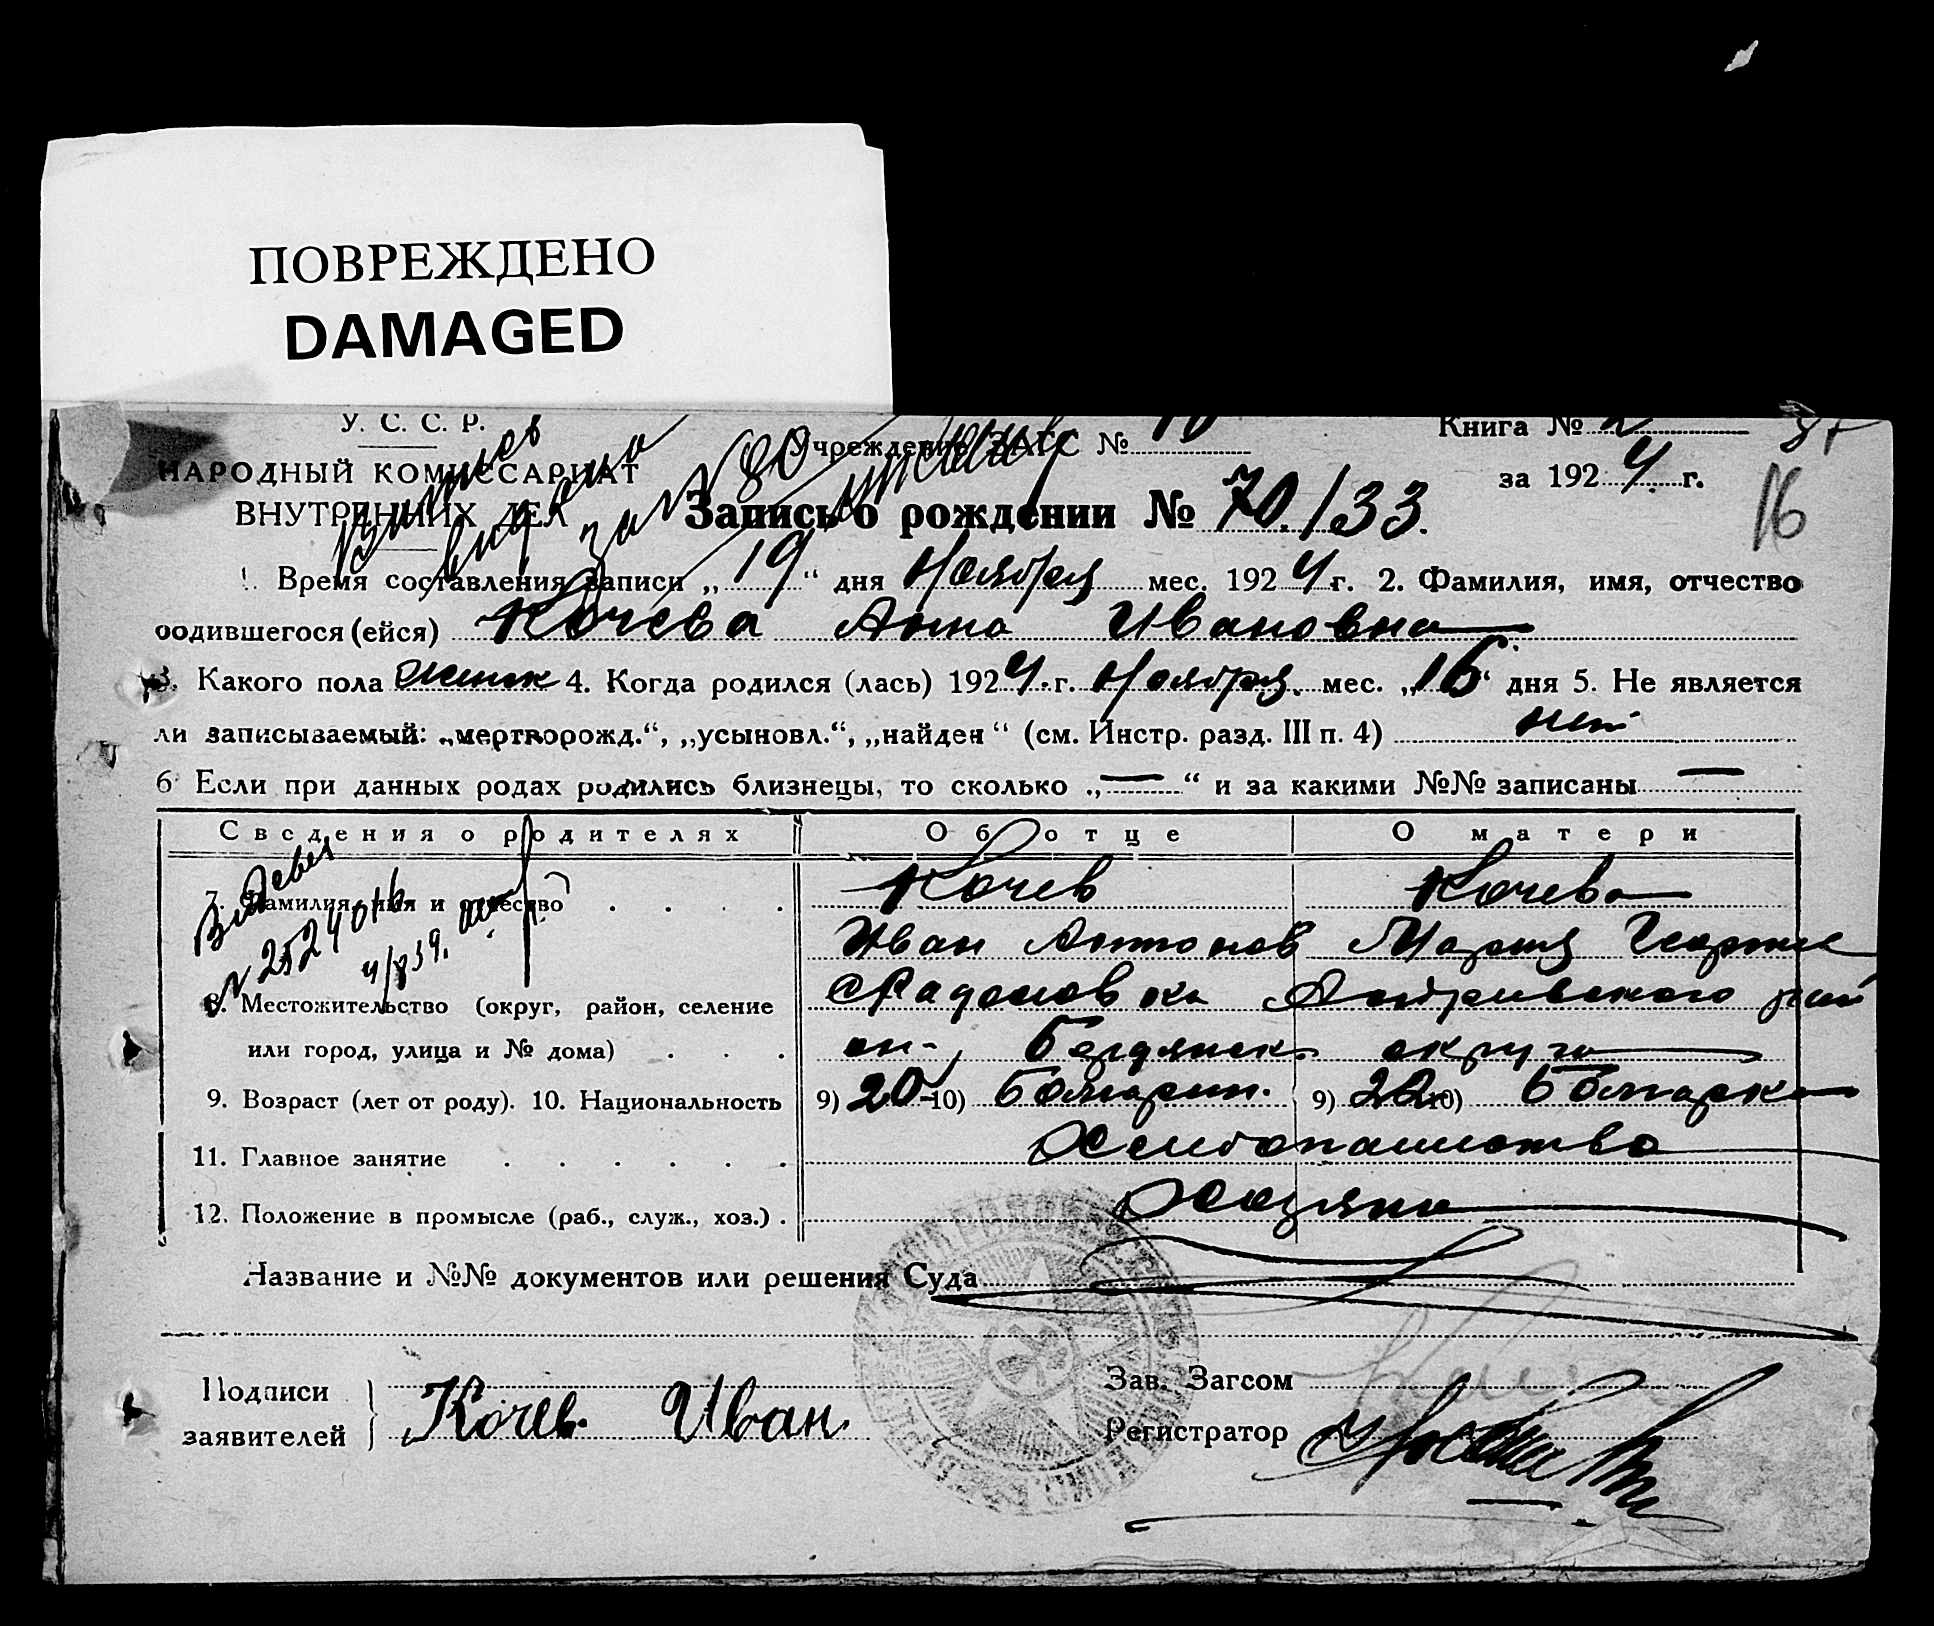 ПОВРЕЖДЕНО
DAMAGED
У. С. С. Р.
Учреждение ЗАГС № 10
Книга № 2
НАРОДНЫЙ КОМИССАРИАТ
за 1924 г.
16
ВНУТРЕННИХ ДЕЛ
Запись о рождении № 70./33.
выдана
за № 80
1. Время составления записи „19“ дня Ноября мес. 1924 г. 2. Фамилия, имя, отчество
родившегося (ейся) Кочева Анна Ивановна
3. Какого пола женск 4. Когда родился (лась) 1924 г. Ноября мес. „16“ дня 5. Не является
ли записываемый: „мертворожд.“, „усыновл.“, „найден“ (см. Инстр. разд. III п. 4) нет
6 Если при данных родах родились близнецы, то сколько „—“ и за какими №№ записаны —
Сведения о родителях Об отце О матери
7. Фамилия, имя и отчество Кочев Кочева
Иван Антонов Мария Георгие
8. Местожительство (округ, район, селение
с Радоловка Андриевского рай
или город, улица и № дома) он-, Бердянск округа
9. Возраст (лет от роду). 10. Национальность 9) 20 10) Болгарин. 9) 22 10) Болгарка
11. Главное занятие Хлебопашество
12. Положение в промысле (раб., служ., хоз.) Хозяин
Название и №№ документов или решения Суда
Подписи
заявителей
Кочев Иван
Зав. Загсом
Регистратор